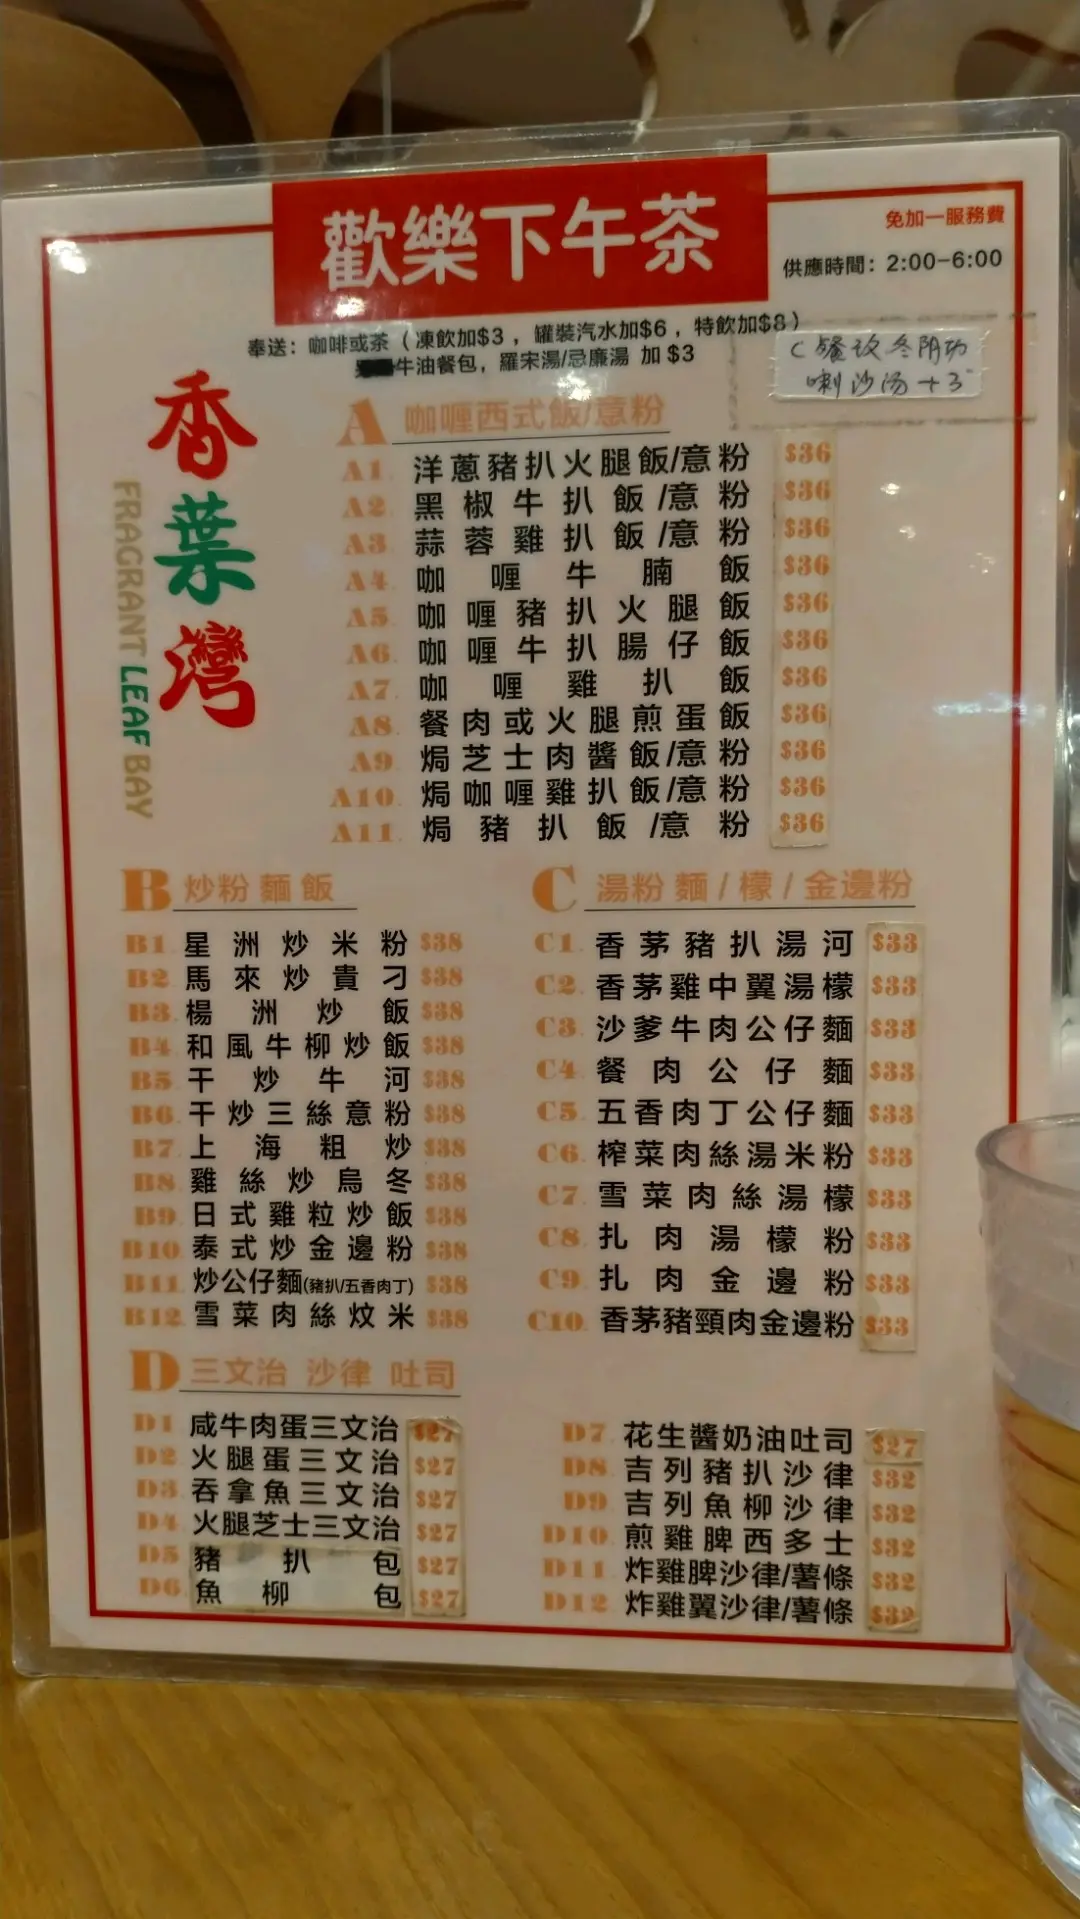 歡樂下午茶
免加一服務費
供應時間：2:00-6:00
奉送：咖啡或茶（凍飲加$3，罐裝汽水加$6，特飲加$8）
牛油餐包，羅宋湯/忌廉湯 加 $3
C餐改冬阴功
喇沙汤+3
香葉灣
FRAGRANT LEAF BAY
A 咖喱西式飯/意粉
A1. 洋蔥豬扒火腿飯/意粉 $36
A2. 黑椒牛扒飯/意粉 $36
A3. 蒜蓉雞扒飯/意粉 $36
A4. 咖喱牛腩飯 $36
A5. 咖喱豬扒火腿飯 $36
A6. 咖喱牛扒腸仔飯 $36
A7. 咖喱雞扒飯 $36
A8. 餐肉或火腿煎蛋飯 $36
A9. 焗芝士肉醬飯/意粉 $36
A10. 焗咖喱雞扒飯/意粉 $36
A11. 焗豬扒飯/意粉 $36
B 炒粉麵飯
B1. 星洲炒米粉 $38
B2. 馬來炒貴刁 $38
B3. 楊洲炒飯 $38
B4. 和風牛柳炒飯 $38
B5. 干炒牛河 $38
B6. 干炒三絲意粉 $38
B7. 上海粗炒 $38
B8. 雞絲炒烏冬 $38
B9. 日式雞粒炒飯 $38
B10. 泰式炒金邊粉 $38
B11. 炒公仔麵(豬扒/五香肉丁) $38
B12. 雪菜肉絲炆米 $38
C 湯粉麵/檬/金邊粉
C1. 香茅豬扒湯河 $33
C2. 香茅雞中翼湯檬 $33
C3. 沙爹牛肉公仔麵 $33
C4. 餐肉公仔麵 $33
C5. 五香肉丁公仔麵 $33
C6. 榨菜肉絲湯米粉 $33
C7. 雪菜肉絲湯檬 $33
C8. 扎肉湯檬粉 $33
C9. 扎肉金邊粉 $33
C10. 香茅豬頸肉金邊粉 $33
D 三文治 沙律 吐司
D1. 咸牛肉蛋三文治 $27
D2. 火腿蛋三文治 $27
D3. 吞拿魚三文治 $27
D4. 火腿芝士三文治 $27
D5. 豬扒包 $27
D6. 魚柳包 $27
D7. 花生醬奶油吐司 $27
D8. 吉列豬扒沙律 $32
D9. 吉列魚柳沙律 $32
D10. 煎雞脾西多士 $32
D11. 炸雞脾沙律/薯條 $32
D12. 炸雞翼沙律/薯條 $32